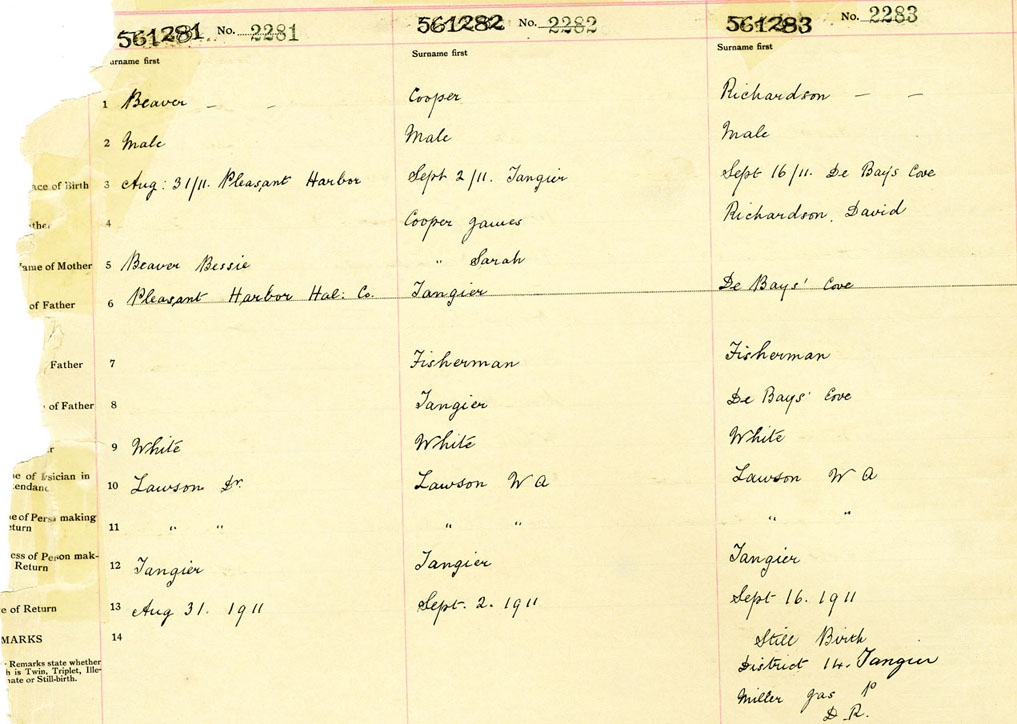 561281 No. 2281 561282 No. 2282 561283 No. 2283
urname first Surname first Surname first
1 Beaver — — Cooper Richardson — —
2 Male Male Male
ace of Birth 3 Aug: 31/11. Pleasant Harbor Sept 2/11. Tangier Sept 16/11. De Bay's Cove
ther 4 Cooper James Richardson, David
ame of Mother 5 Beaver Bessie " Sarah
of Father 6 Pleasant Harbor Hal: Co. Tangier De Bays' Cove
Father 7 Fisherman Fisherman
of Father 8 Tangier De Bays' Cove
r 9 White White White
e of sician in
endanc 10 Lawson Dr. Lawson W A Lawson W A
e of Pers making
turn 11 " " " " " "
ess of Person mak-
Return 12 Tangier Tangier Tangier
e of Return 13 Aug 31. 1911 Sept. 2. 1911 Sept 16. 1911
MARKS 14 Still Birth
Remarks state whether
h is Twin, Triplet, Ille-
ate or Still-birth.
District 14. Tangier
Miller Jas
D.R.